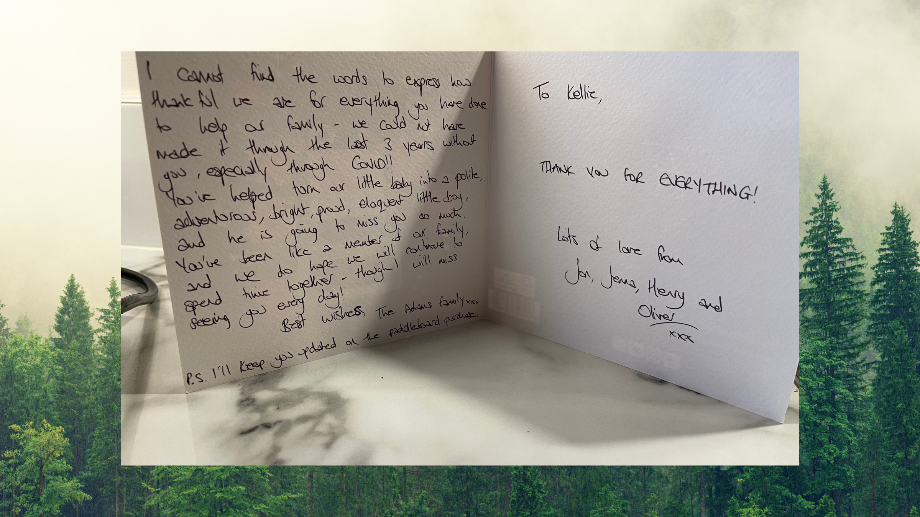 I cannot find the words to express how
thankful we are for everything you have done
to help our family - we could not have
made it through the last 3 years without
you, especially through Covid!!
You've helped turn our little baby into a polite,
adventurous, bright, proud, eloquent little boy,
and he is going to miss you so much.
You've been like a member of our family,
and we do hope we will continue to
spend time together - though I will miss
seeing you every day!
Best wishess, The Adams family xxx
P.S. I'll keep you updated on the paddleboard purchase
To Kellie,
THANK YOU FOR EVERYTHING!
Lots of love from
Jon, Jenna, Henry and
Oliver
xxx